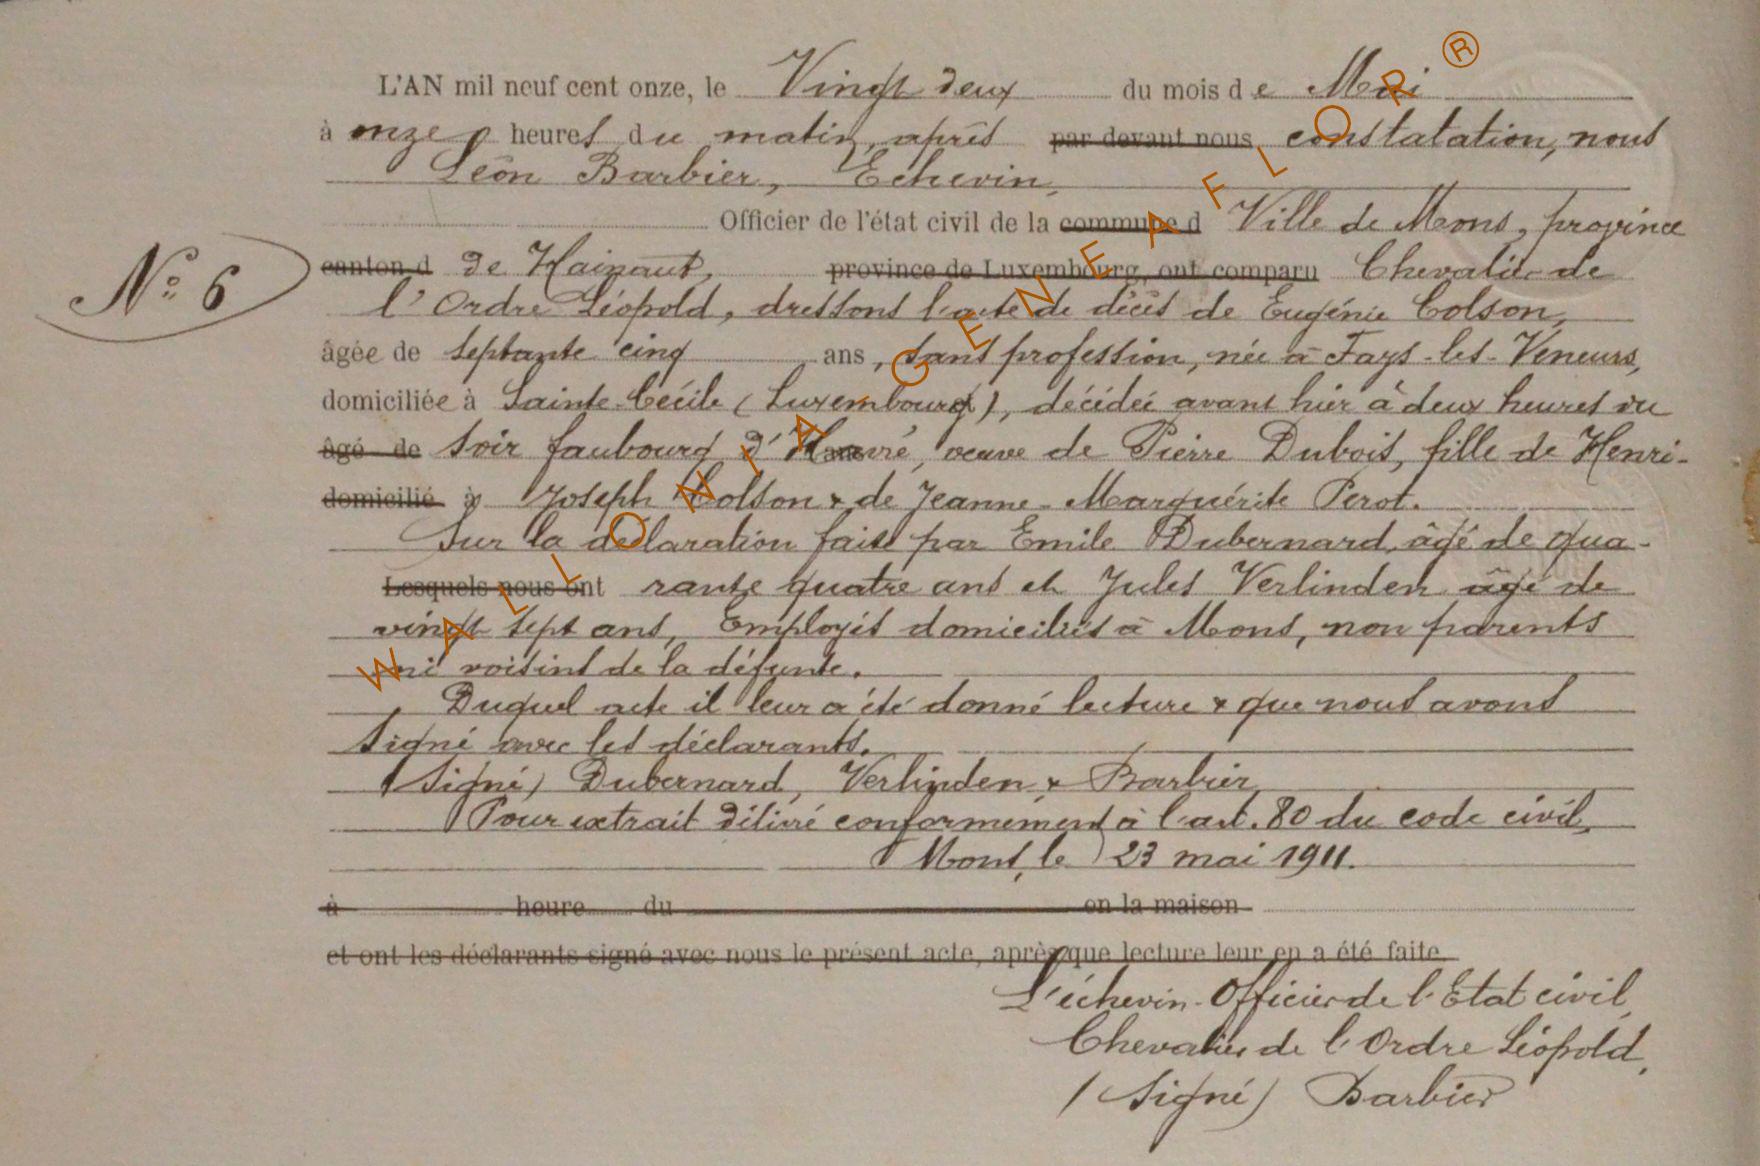 L'AN mil neuf cent onze, le Vingt deux du mois de Mai
à onze heures du matin, après par devant nous constatation, nous
Léon Barbier, Echevin,
Officier de l'état civil de la commune d Ville de Mons, province
N° 6
canton d de Hainaut, province de Luxembourg, ont comparu Chevalier de
l'Ordre Léopold, dressons l'acte de décès de Eugénie Colson,
âgée de septante cinq ans, sans profession, née à Fays-les-Veneurs,
domiciliée à Sainte-Cécile (Luxembourg), décédée avant hier à deux heures du
âgé de soir faubourg d'Havré, ans veuve de Pierre Dubois, fille de Henri-
domicilié à Joseph Colson & de Jeanne-Marguérite Perot.
Sur la déclaration faite par Emile Dubernard, âgé de qua-
Lesquels nous ont rante quatre ans et Jules Verlinden âgé de
vingt sept ans, Employés domiciliés à Mons, non parents
ni voisins de la défunte.
Duquel acte il leur a été donné lecture & que nous avons
signé avec les déclarants.
(Signé) Dubernard, Verlinden & Barbier
Pour extrait délivré conformément à l'art. 80 du code civil,
Mons, le 23 mai 1911.
à heure du en la maison
et ont les déclarants signé avec nous le présent acte, après que lecture leur en a été faite
L'échevin-Officier de l'Etat civil,
Chevalier de l'Ordre Léopold,
(Signé) Barbier
WALLONIA-GENEAFLOR®